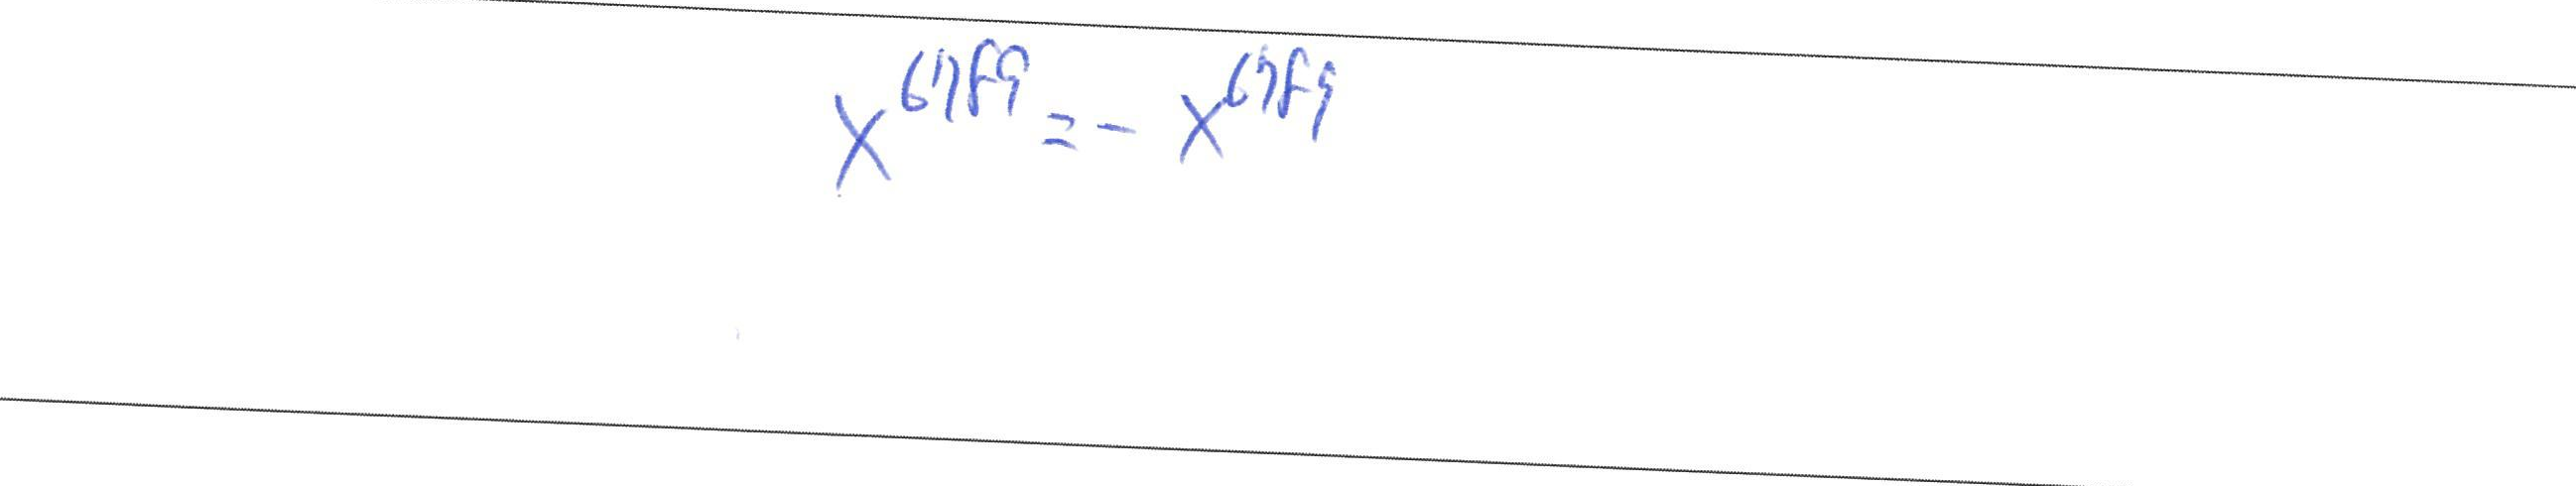 x^6789 = - x^6789